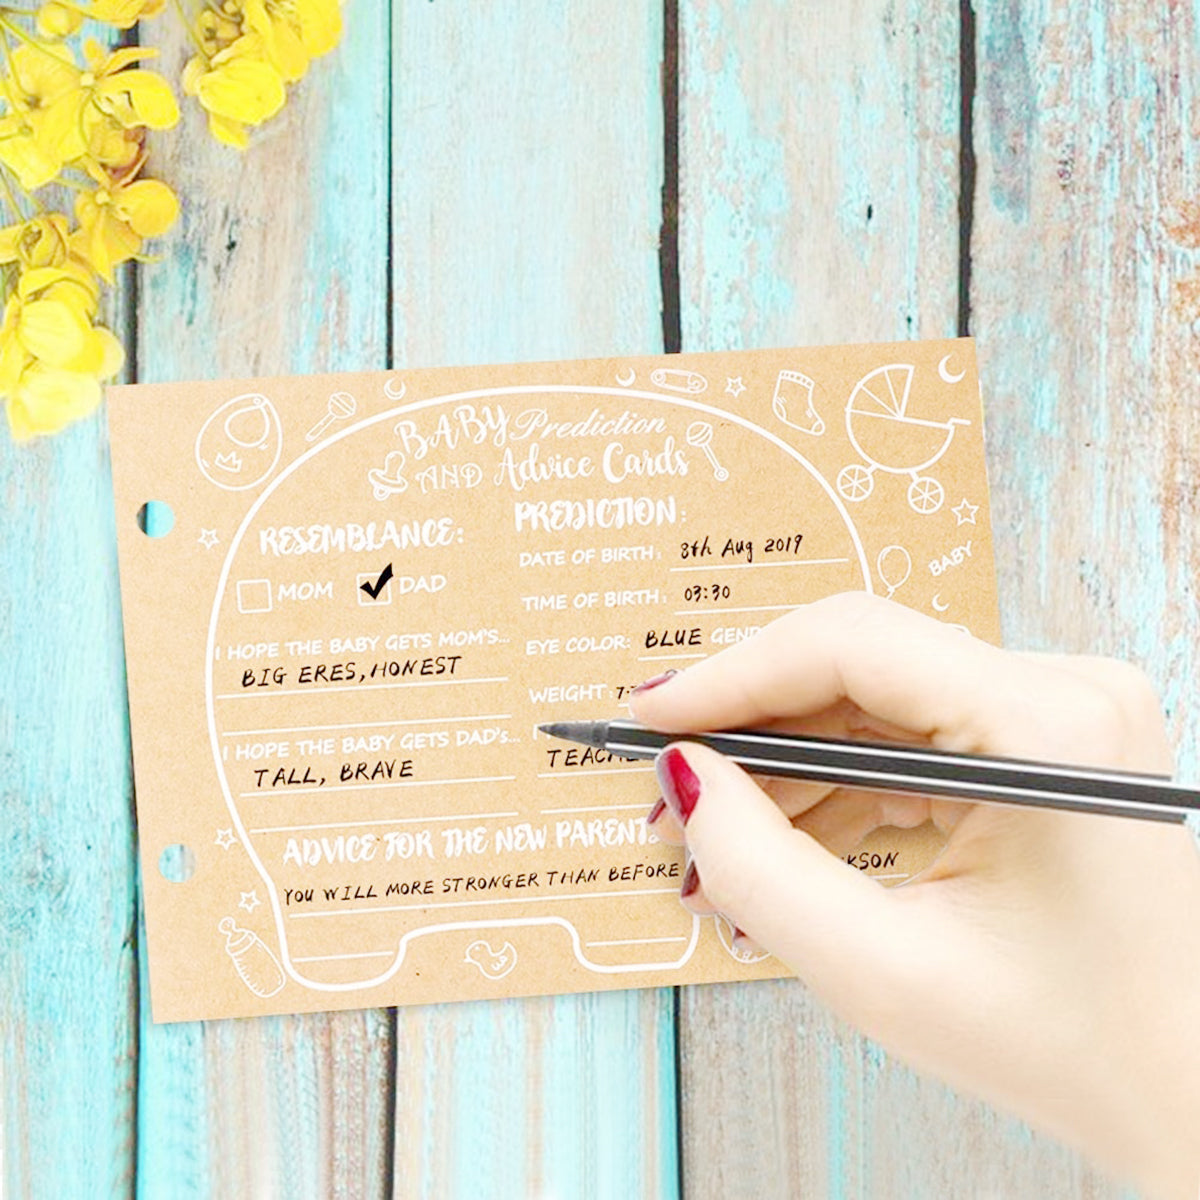 BABY Prediction
AND Advice Cards
RESEMBLANCE:
MOM DAD
I HOPE THE BABY GETS MOM'S...
BIG ERES, HONEST
I HOPE THE BABY GETS DAD's...
TALL, BRAVE
PREDICTION:
DATE OF BIRTH: 8th Aug 2019
TIME OF BIRTH: 03:30
EYE COLOR: BLUE
WEIGHT:
ADVICE FOR THE NEW PARENTS
YOU WILL MORE STRONGER THAN BEFORE
BABY